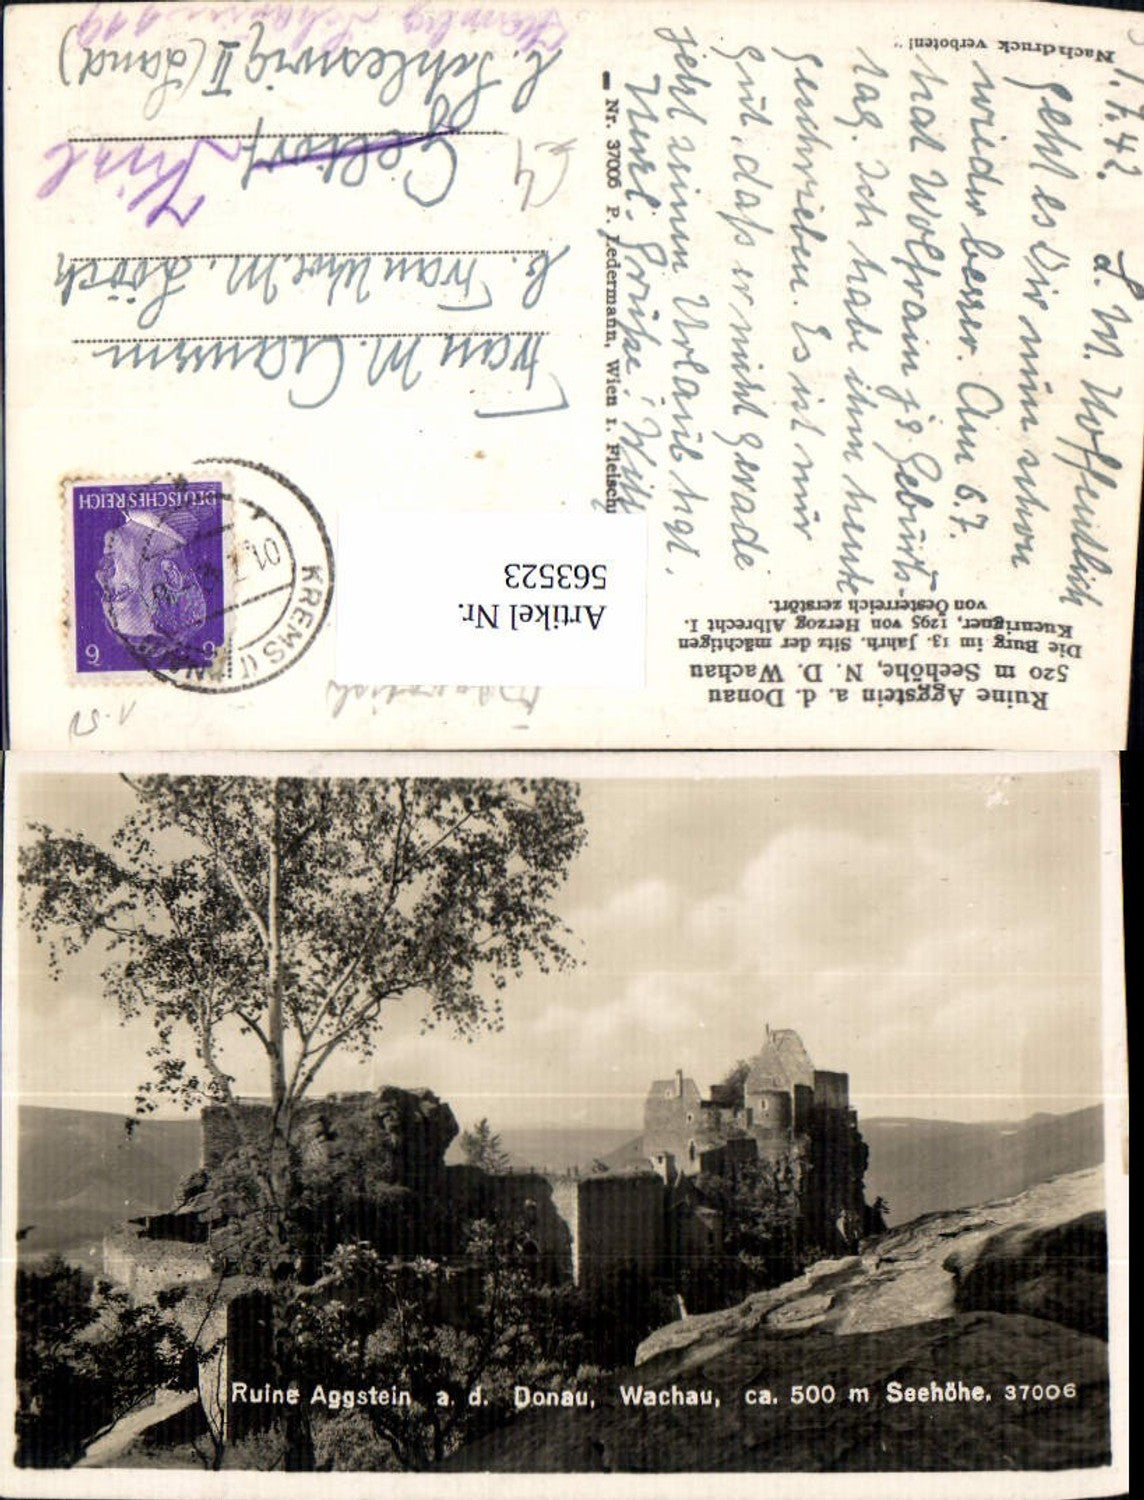 Ruine Aggstein a. d. Donau
520 m Seehöhe, N. D. Wachau
Die Burg im 13. Jahrh. Sitz der mächtigen
Kuenringer, 1295 von Herzog Albrecht I.
von Oesterreich zerstört.
1.7.42.
L. M. Hoffentlich
geht es Dir nun schon
wieder besser. Am 6.7.
hat Wolfram js Geburts-
tag. Ich habe ihm heute
geschrieben. Es ist nur
gut, daß er nicht gerade
jetzt seinen Urlaub hat.
Grüße!
Nachdruck verboten!
Nr. 37006 P. Ledermann, Wien 1. Fleisch
DEUTSCHES REICH
6 6
KREMS
01.7
Artikel Nr.
563523
Frau M.
b. Frau M.
b. Schleswig II (Land)
1.50
Ruine Aggstein a. d. Donau, Wachau, ca. 500 m Seehöhe. 37006